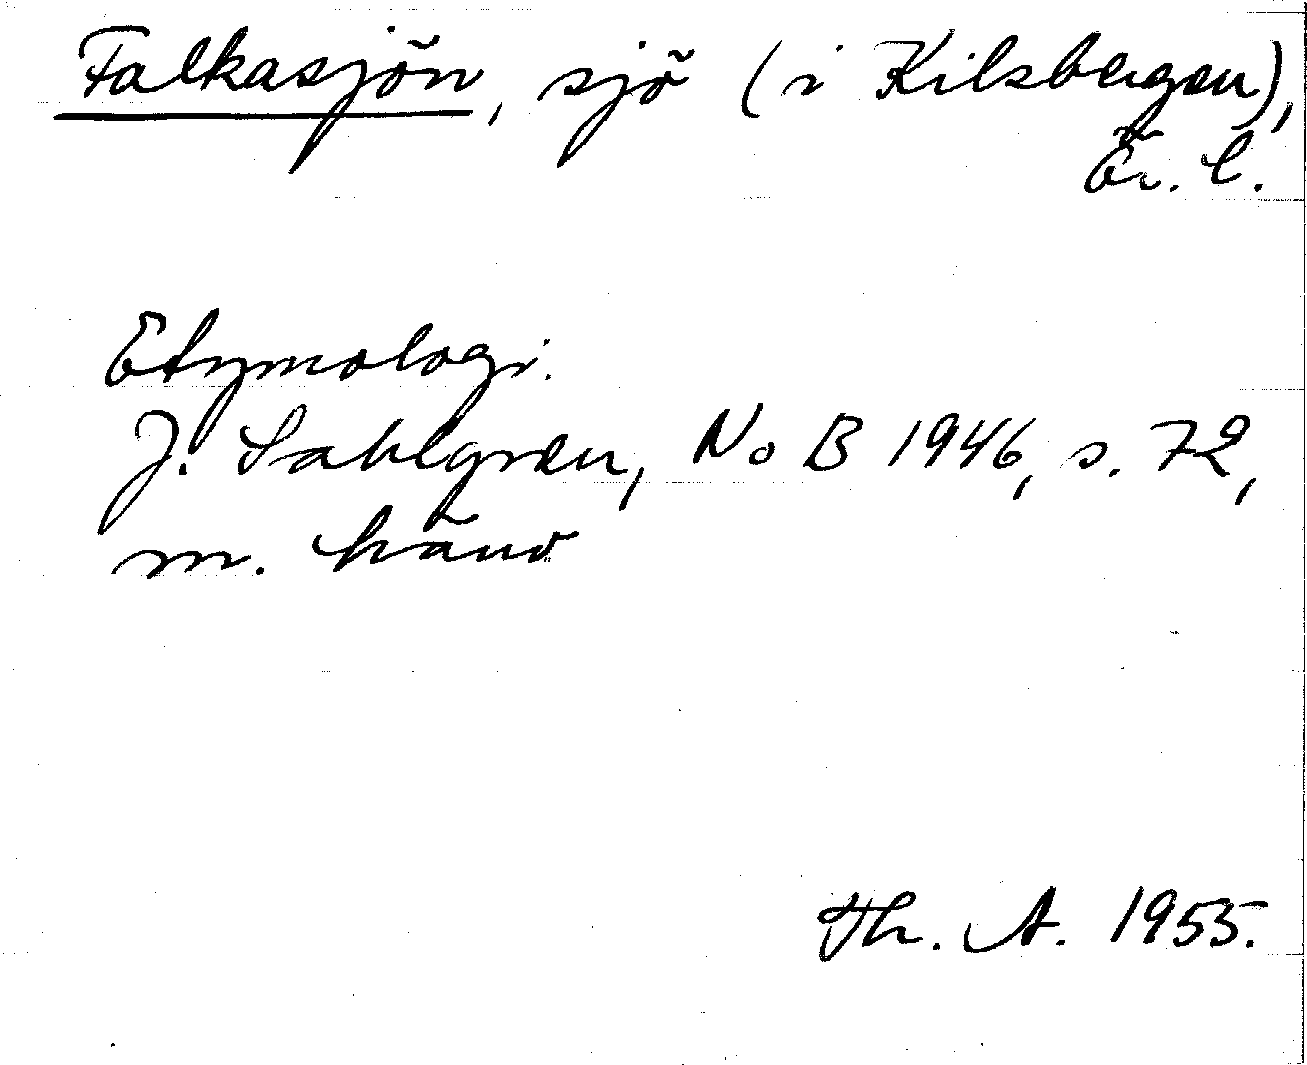 Falkasjön, sjö (i Kilsbergen),
Ör. l.
Etymologi.
J. Sahlgren, NoB 1946, s. 72,
m. hänv
Th. A. 1955.